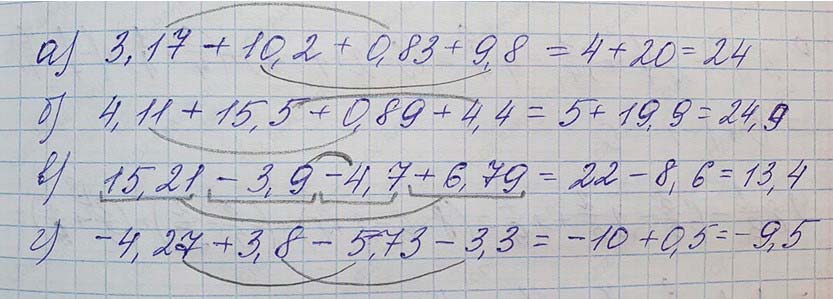 а) 3,17 + 10,2 + 0,83 + 9,8 = 4 + 20 = 24
б) 4,11 + 15,5 + 0,89 + 4,4 = 5 + 19,9 = 24,9
в) 15,21 - 3,9 - 4,7 + 6,79 = 22 - 8,6 = 13,4
г) -4,27 + 3,8 - 5,73 - 3,3 = -10 + 0,5 = -9,5